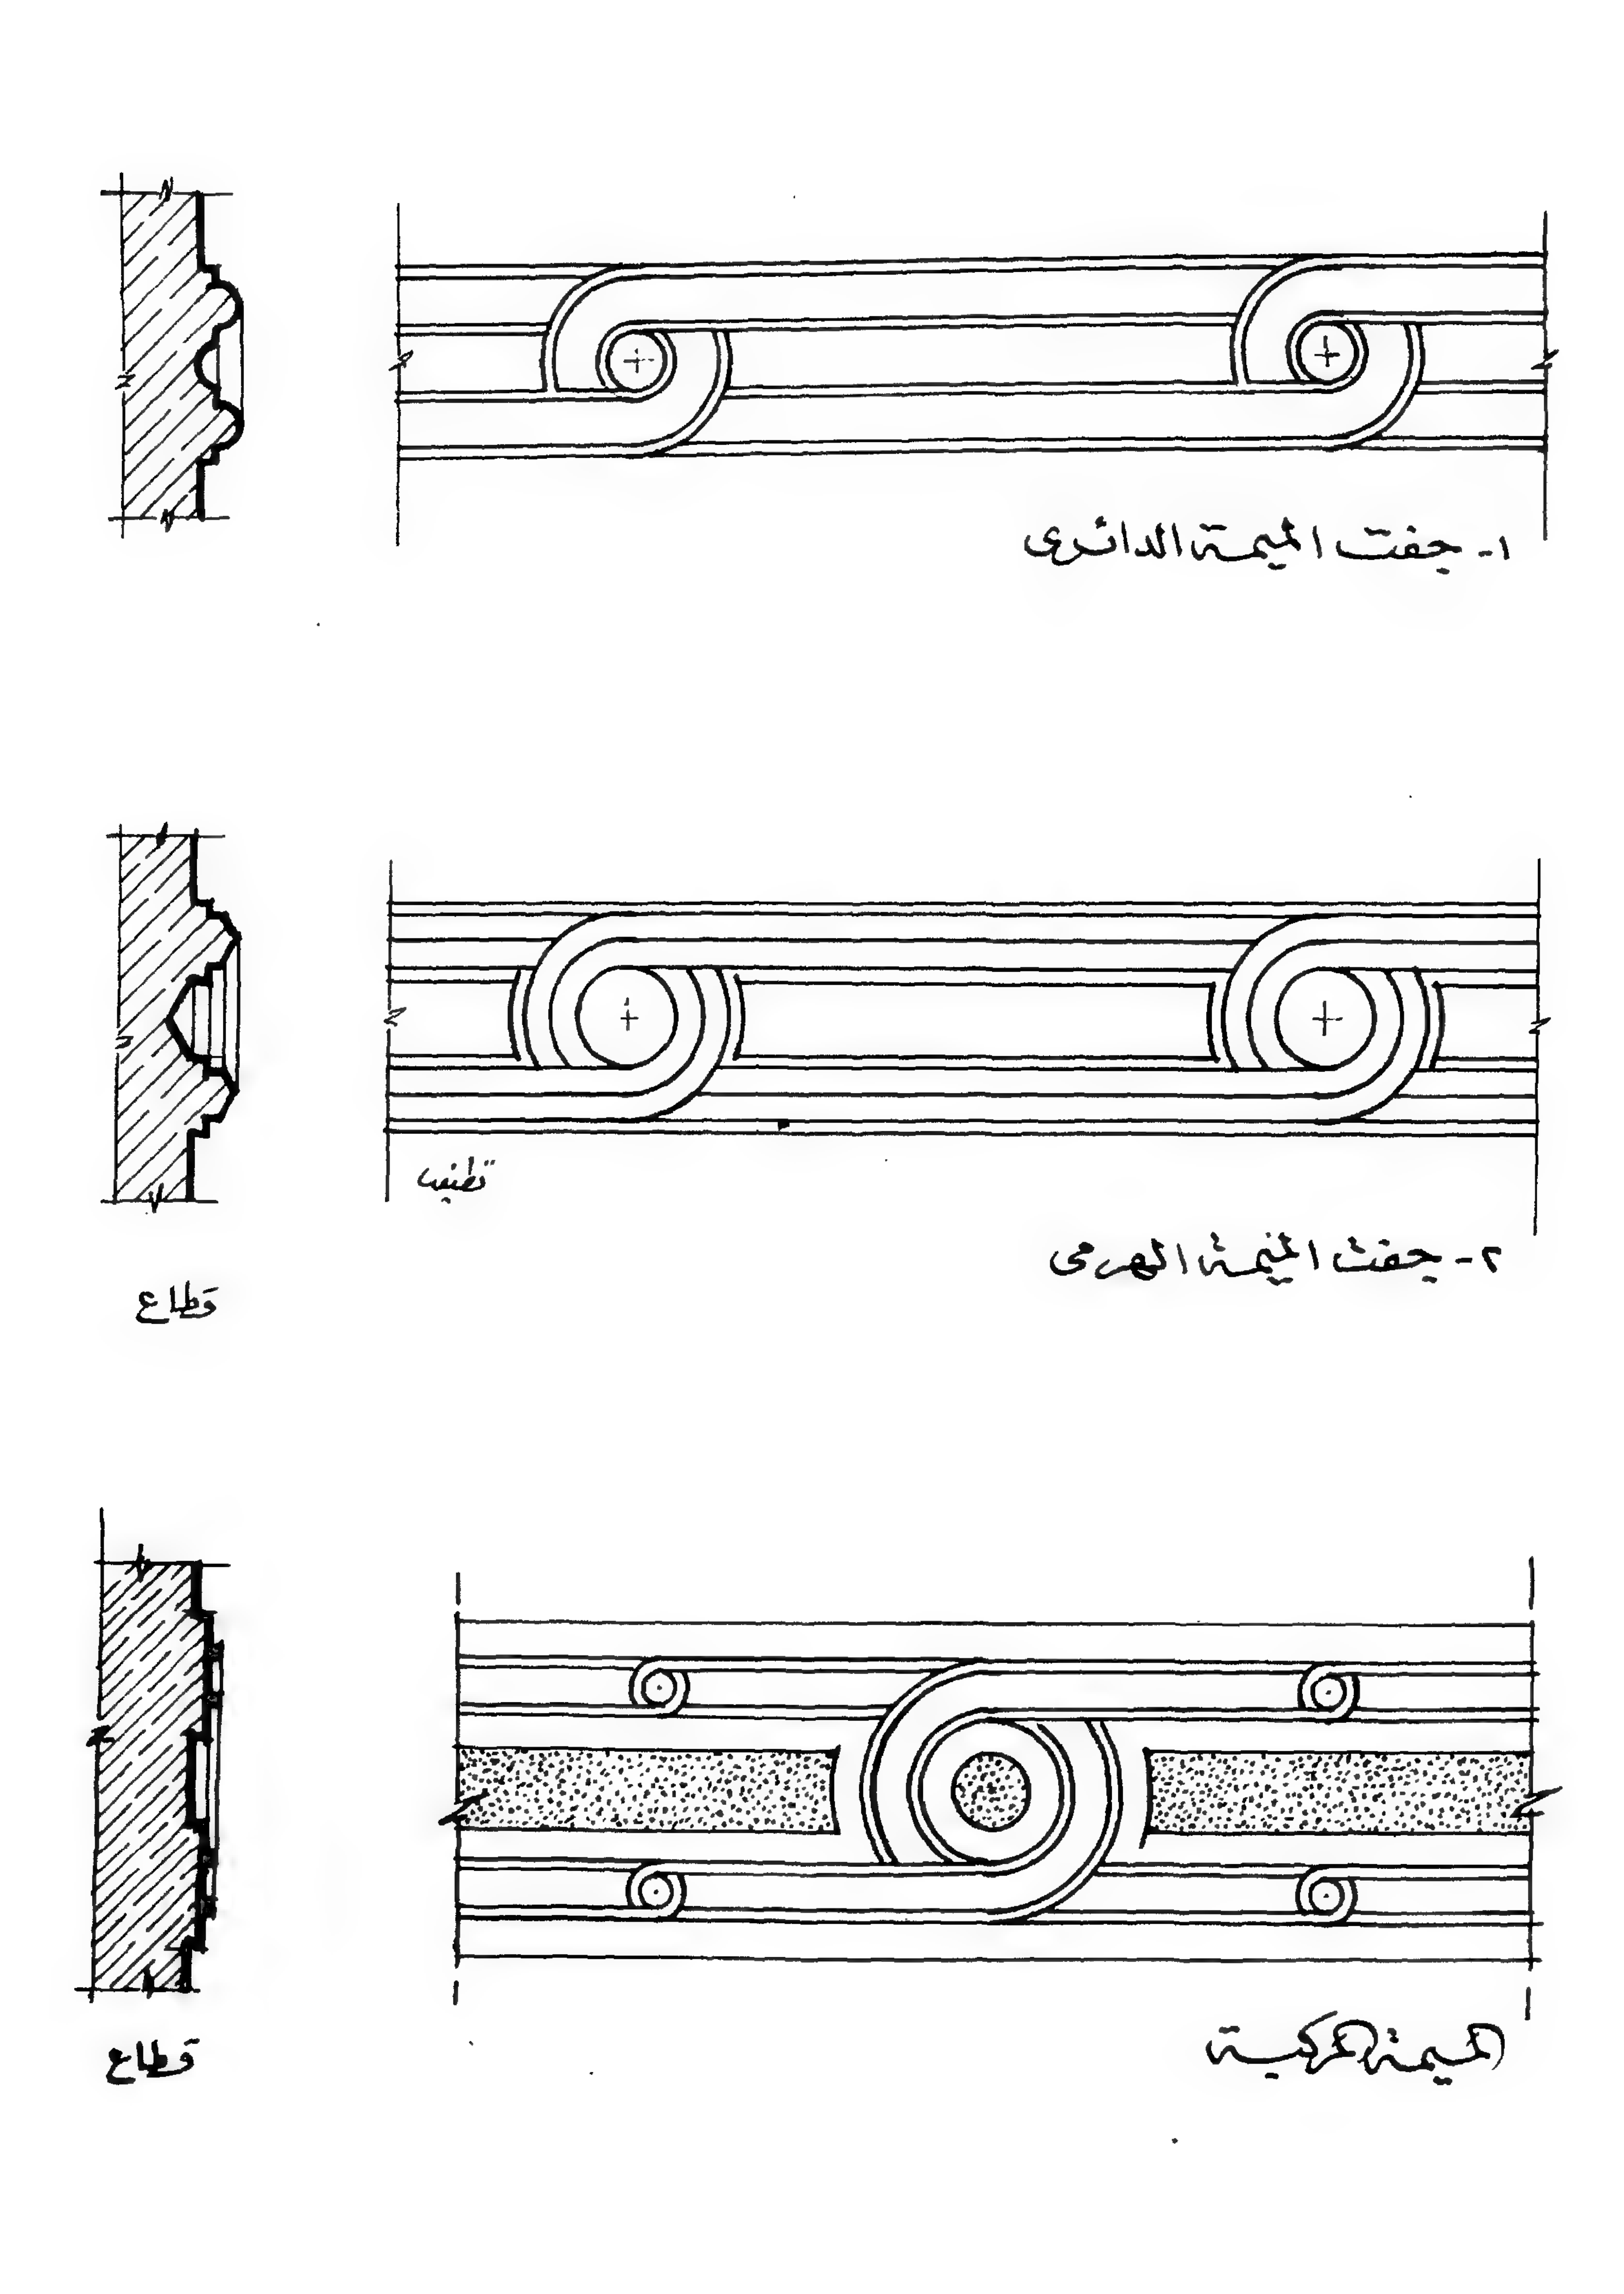 ١- جفت الميمة الدائرى
٢- جفت الميمة الهرمى
قطاع
الميمة المركبة
قطاع